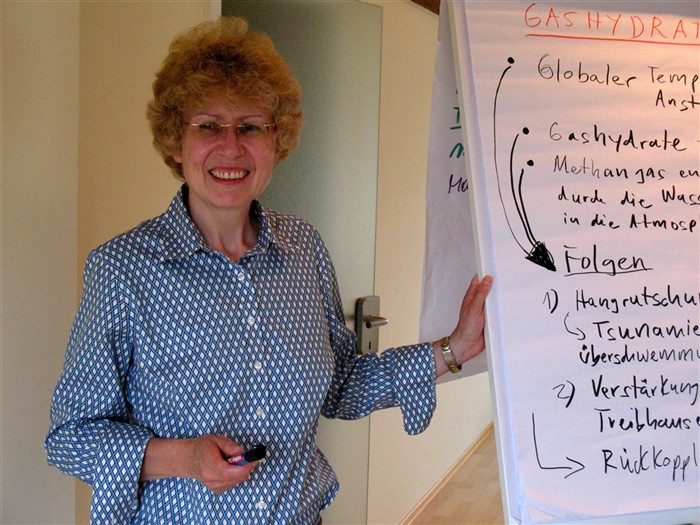 GASHYDRAT
Globaler Temp
Anst
Gashydrate
Methangas en
durch die Wass
in die Atmosp
Folgen
1) Hangrutschu
Tsunamie
überschwemmu
2) Verstärkung
Treibhause
Rückkoppl